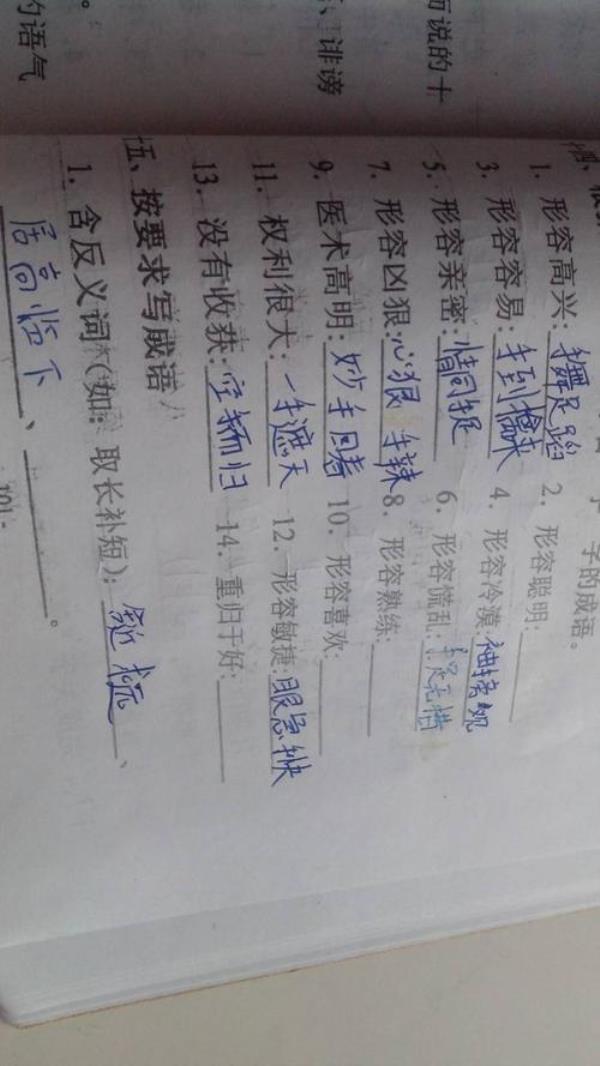 而说的十
、诽谤
。
的语气
四、根
字的成语。
1. 形容高兴:手舞足蹈 2. 形容聪明:
3. 形容容易:手到擒来 4. 形容冷漠:袖手旁观
5. 形容亲密:情同手足 6. 形容慌乱:手足无措
7. 形容凶狠:心狠手辣 8. 形容熟练:
9. 医术高明:妙手回春 10. 形容喜欢:
11. 权利很大:一手遮天 12. 形容敏捷:眼急手快
13. 没有收获:空手而归 14. 重归于好:
五、按要求写成语
1. 含反义词(如:取长补短):、
居高临下、。